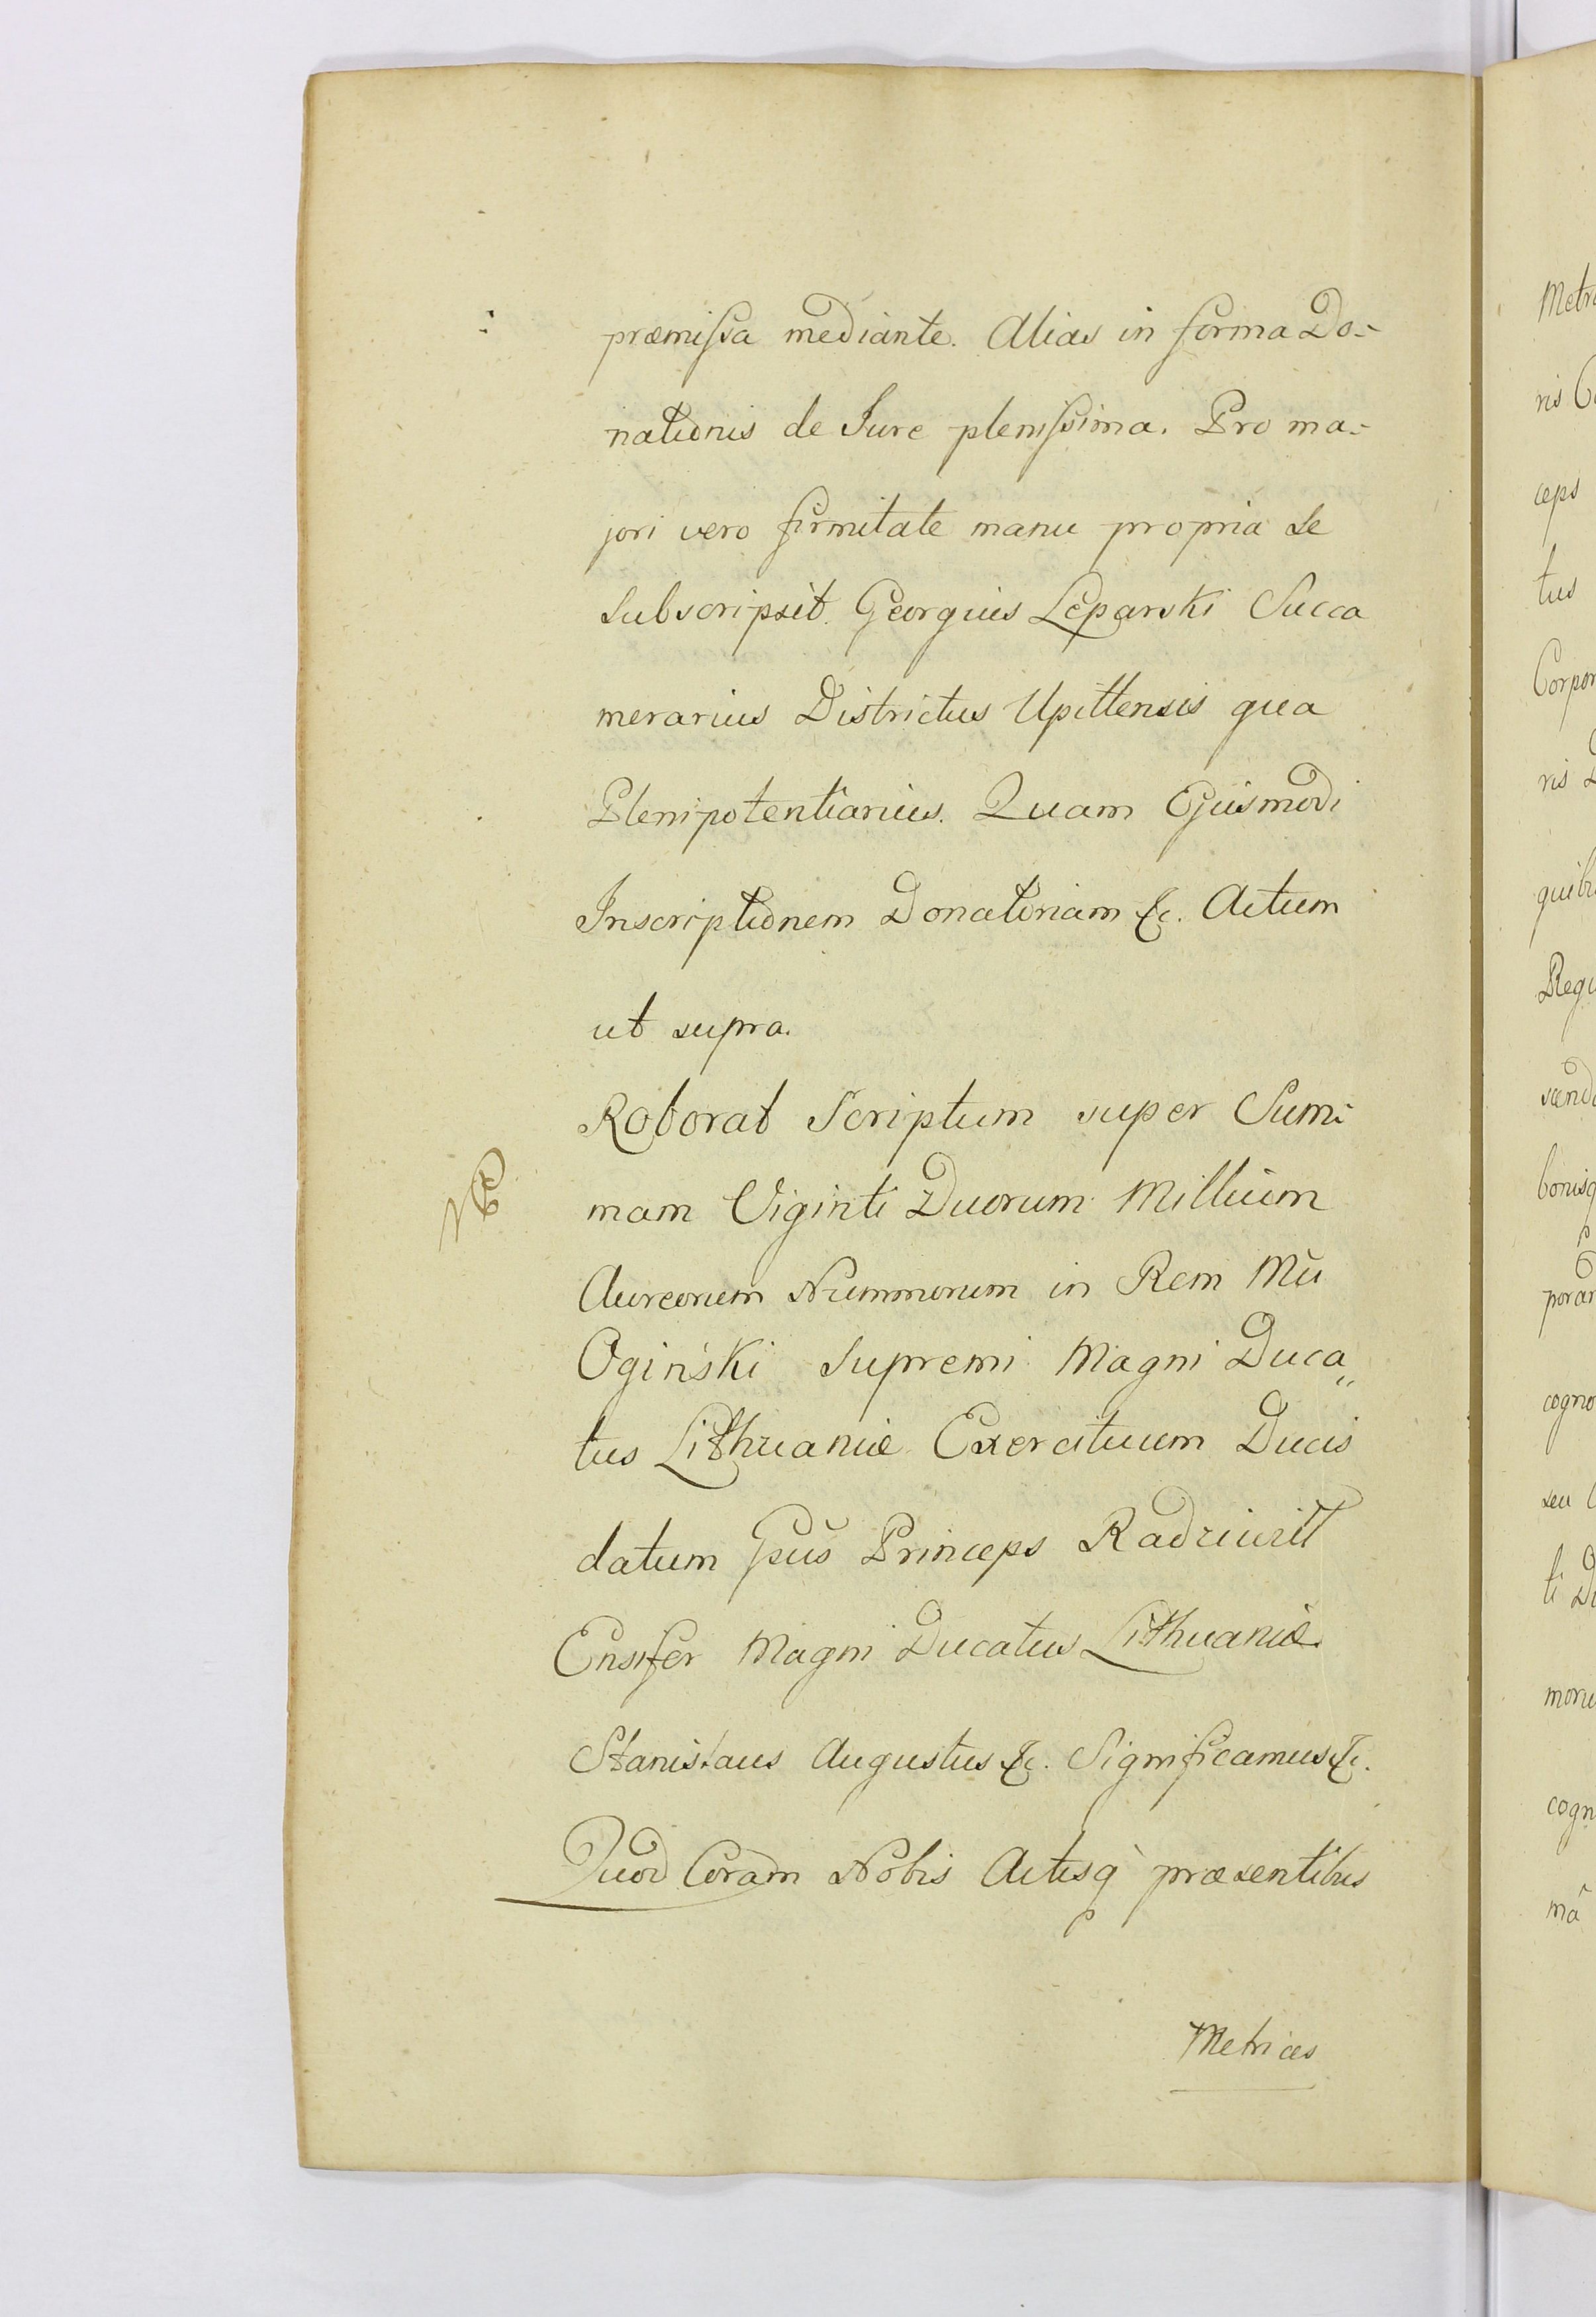 præmissa mediante. Alias in forma Do=
nationis de Jure plenissima. Pro ma=
jori vero firmitate manu propria se
subscripsit. Georgius Leparski Succa
merarius Districtus Upittensis qua
Plenipotentiarius. Quam Ejusmodi
Inscriptionem Donatoriam &c. Actum
ut supra.
Roborat Scriptum super Sum=
NB
mam Viginti Duorum Millium
Aureorum Nummorum in Rem Mci
Ogiński Supremi Magni Duca„
tus Lithuaniæ Exercituum Ducis
datum Gsus Princeps Radziwiłł
Ensifer Magni Ducatus Lithuaniæ
Stanislaus Augustus &c. Significamus &c.
Quod Coram Nobis Actisq præsentibus
Metrices
Metri
ris
ceps
tus
Corpor
ris
quibu
Regu
bonisq
porar
cogno
seu
ti Du
moru
cogn
mâ